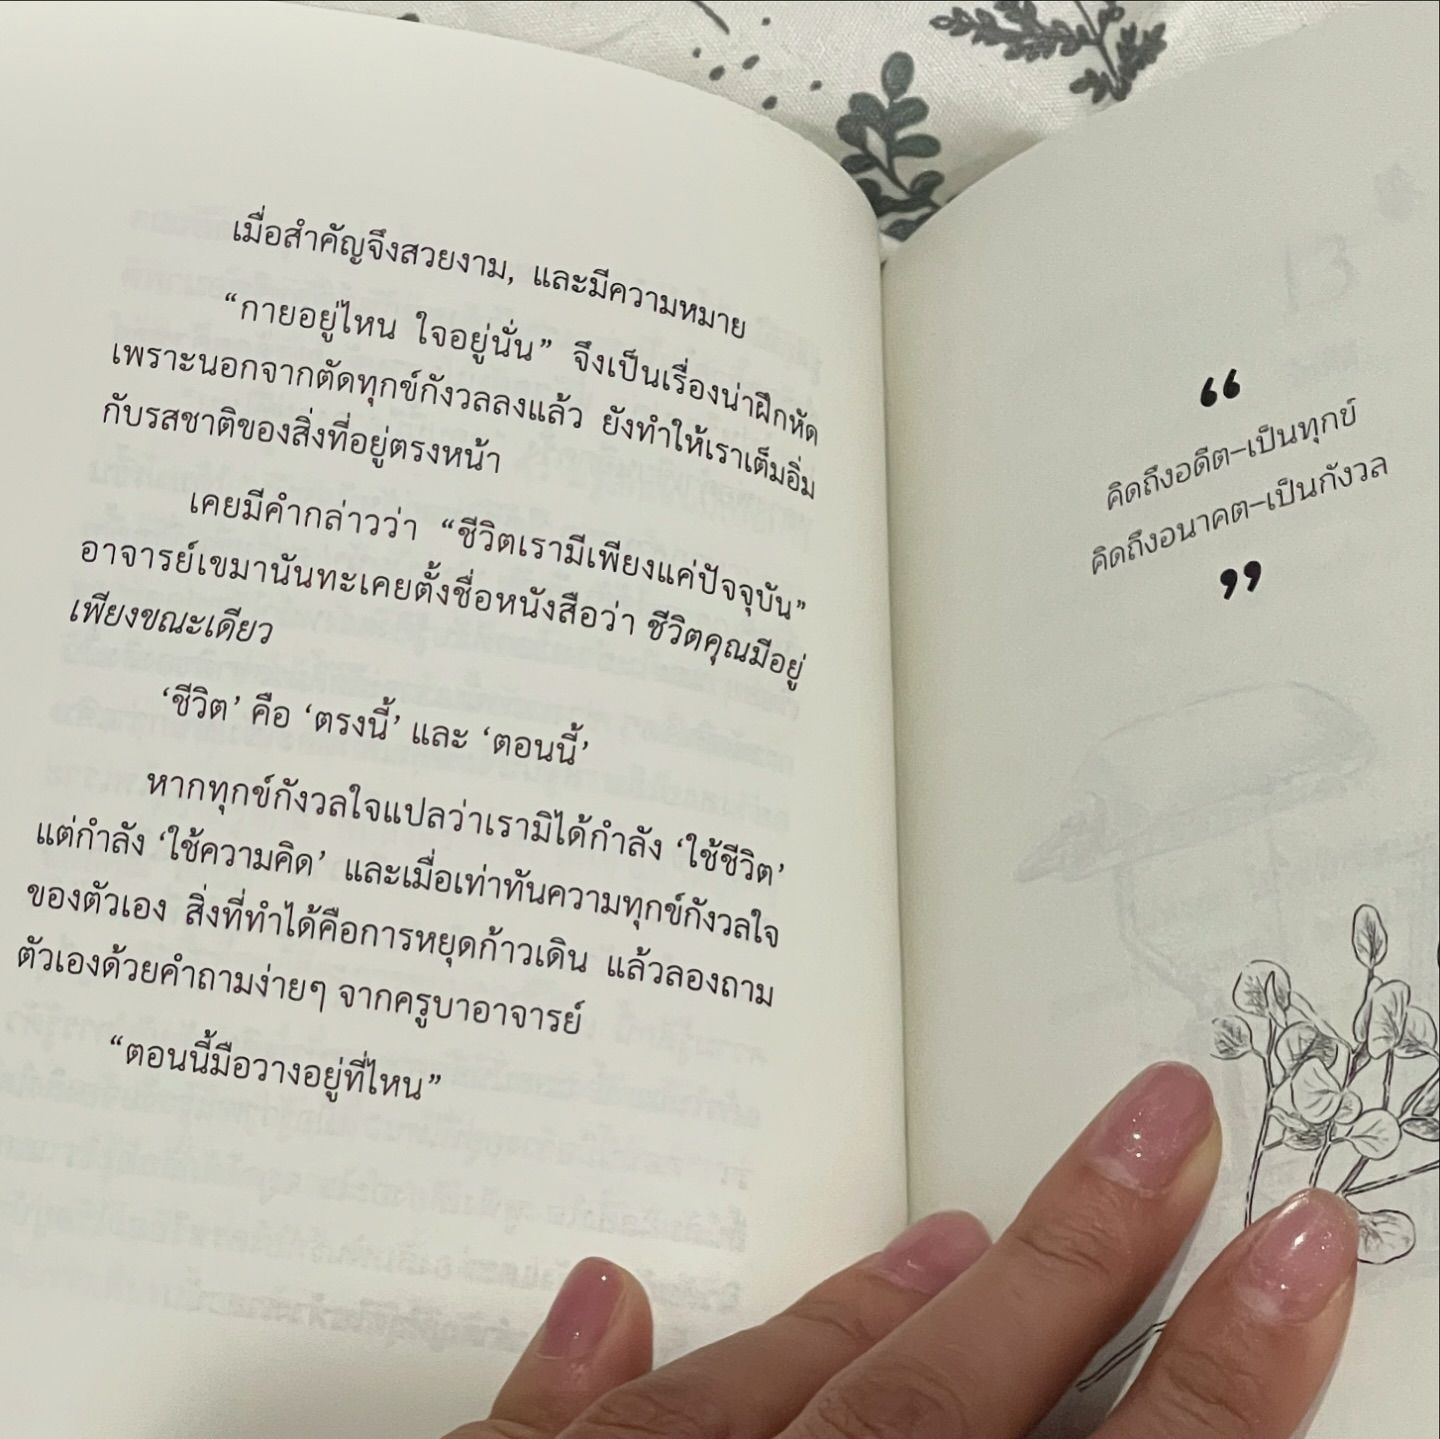 เมื่อสำคัญจึงสวยงาม, และมีความหมาย
“กายอยู่ไหน ใจอยู่นั่น” จึงเป็นเรื่องน่าฝึกหัด
เพราะนอกจากตัดทุกข์กังวลลงแล้ว ยังทำให้เราเต็มอิ่ม
กับรสชาติของสิ่งที่อยู่ตรงหน้า
เคยมีคำกล่าวว่า “ชีวิตเรามีเพียงแค่ปัจจุบัน”
อาจารย์เขมานันทะเคยตั้งชื่อหนังสือว่า ชีวิตคุณมีอยู่
เพียงขณะเดียว
‘ชีวิต’ คือ ‘ตรงนี้’ และ ‘ตอนนี้’
หากทุกข์กังวลใจแปลว่าเรามิได้กำลัง ‘ใช้ชีวิต’
แต่กำลัง ‘ใช้ความคิด’ และเมื่อเท่าทันความทุกข์กังวลใจ
ของตัวเอง สิ่งที่ทำได้คือการหยุดก้าวเดิน แล้วลองถาม
ตัวเองด้วยคำถามง่ายๆ จากครูบาอาจารย์
“ตอนนี้มือวางอยู่ที่ไหน”
“
คิดถึงอดีต–เป็นทุกข์
คิดถึงอนาคต–เป็นกังวล
”